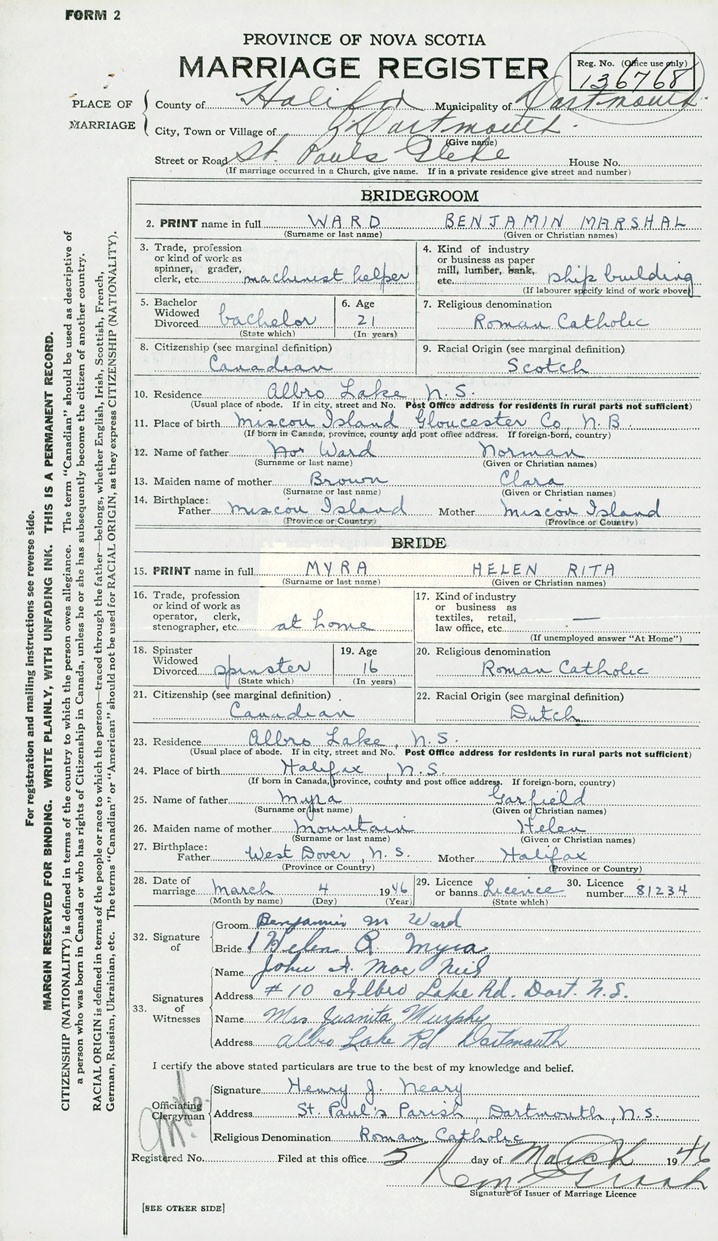 FORM 2
PROVINCE OF NOVA SCOTIA
MARRIAGE REGISTER
Reg. No. (Office use only)
136768
PLACE OF MARRIAGE
County of Halifax Municipality of Dartmouth
City, Town or Village of Dartmouth
(Give name)
Street or Road St. Pauls Glebe House No.
(If marriage occurred in a Church, give name. If in a private residence give street and number)
BRIDEGROOM
2. PRINT name in full WARD BENJAMIN MARSHAL
(Surname or last name) (Given or Christian names)
3. Trade, profession or kind of work as spinner, grader, clerk, etc. machinist helper
4. Kind of industry or business as paper mill, lumber, bank, etc. ship building
(If labourer specify kind of work above)
5. Bachelor Widowed Divorced bachelor (State which)
6. Age 21 (In years)
7. Religious denomination Roman Catholic
8. Citizenship (see marginal definition) Canadian
9. Racial Origin (see marginal definition) Scotch
10. Residence Albro Lake N.S.
(Usual place of abode. If in city, street and No. Post Office address for residents in rural parts not sufficient)
11. Place of birth Miscou Island Gloucester Co. N.B.
(If born in Canada, province, county and post office address. If foreign-born, country)
12. Name of father Ward Norman
(Surname or last name) (Given or Christian names)
13. Maiden name of mother Brown Clara
(Surname or last name) (Given or Christian names)
14. Birthplace: Father Miscou Island Mother Miscou Island
(Province or Country) (Province or Country)
BRIDE
15. PRINT name in full MYRA HELEN RITA
(Surname or last name) (Given or Christian names)
16. Trade, profession or kind of work as operator, clerk, stenographer, etc. at home
17. Kind of industry or business as textiles, retail, law office, etc. —
(If unemployed answer "At Home")
18. Spinster Widowed Divorced spinster (State which)
19. Age 16 (In years)
20. Religious denomination Roman Catholic
21. Citizenship (see marginal definition) Canadian
22. Racial Origin (see marginal definition) Dutch
23. Residence Albro Lake, N.S.
(Usual place of abode. If in city, street and No. Post Office address for residents in rural parts not sufficient)
24. Place of birth Halifax, N.S.
(If born in Canada, province, county and post office address. If foreign-born, country)
25. Name of father Myra Garfield
(Surname or last name) (Given or Christian names)
26. Maiden name of mother Mountain Helen
(Surname or last name) (Given or Christian names)
27. Birthplace: Father West Dover, N.S. Mother Halifax
(Province or Country) (Province or Country)
28. Date of marriage March 4 1946
(Month by name) (Day) (Year)
29. Licence or banns Licence (State which)
30. Licence number 81234
32. Signature of
Groom Benjamin M Ward
Bride Helen R. Myra
33. Signatures of Witnesses
Name John A. Mac Neil
Address #10 Albro Lake Rd. Dart. N.S.
Name Mrs Juanita Murphy
Address Albro Lake Rd Dartmouth
I certify the above stated particulars are true to the best of my knowledge and belief.
Officiating Clergyman
Signature Henry J. Neary
Address St. Paul's Parish, Dartmouth, N.S.
Religious Denomination Roman Catholic
Registered No. Filed at this office 5 day of March 1946
Signature of Issuer of Marriage Licence
[SEE OTHER SIDE]
For registration and mailing instructions see reverse side.
MARGIN RESERVED FOR BINDING. WRITE PLAINLY, WITH UNFADING INK. THIS IS A PERMANENT RECORD.
CITIZENSHIP (NATIONALITY) is defined in terms of the country to which the person owes allegiance. The term "Canadian" should be used as descriptive of
a person who was born in Canada or who has rights of Citizenship in Canada, unless he or she has subsequently become the citizen of another country.
RACIAL ORIGIN is defined in terms of the people or race to which the person—traced through the father—belongs, whether English, Irish, Scottish, French,
German, Russian, Ukrainian, etc. The terms "Canadian" or "American" should not be used for RACIAL ORIGIN, as they express CITIZENSHIP (NATIONALITY).